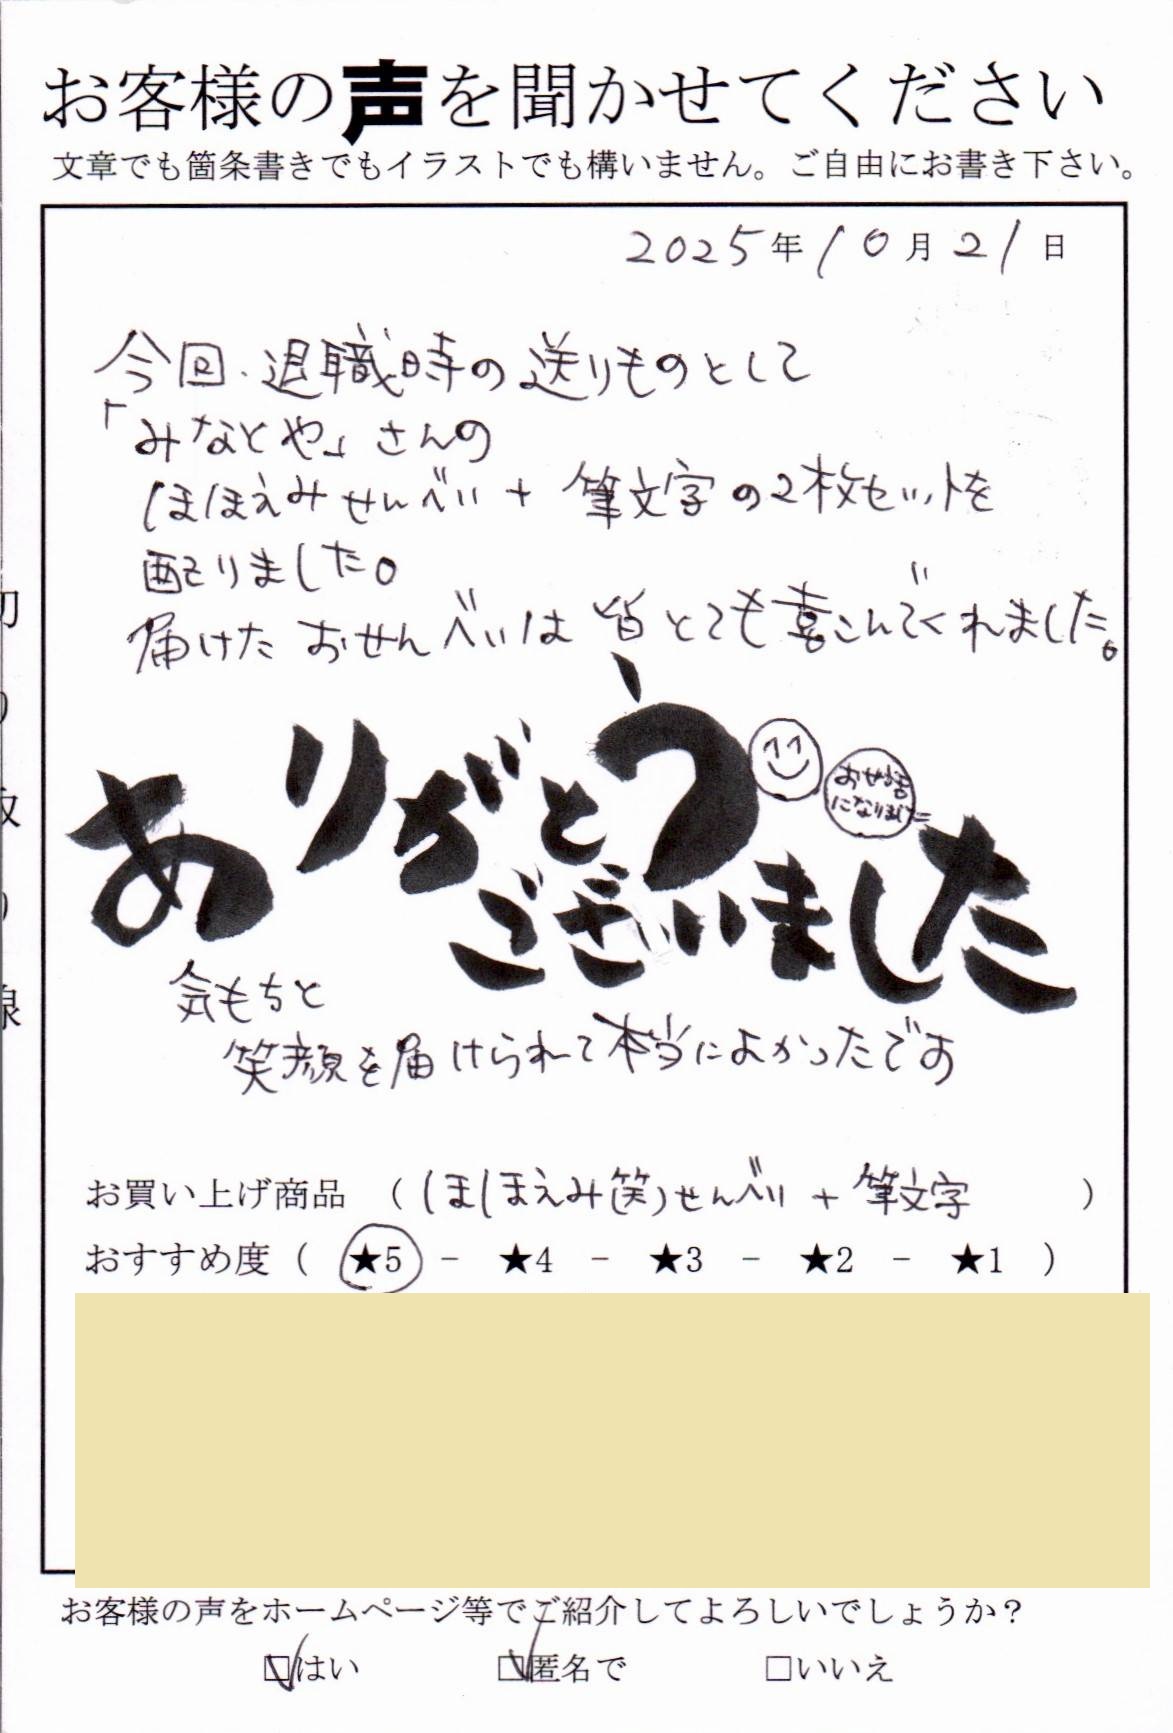 お客様の声を聞かせてください
文章でも箇条書きでもイラストでも構いません。ご自由にお書き下さい。
2025年10月21日
今回、退職時の送りものとして
「みなとや」さんの
ほほえみせんべい + 筆文字の2枚セットを
配りました。
届けたおせんべいは皆とても喜こんでくれました。
ありがとう
おせ話
になりました
ございました
気もちと
笑顔を届けられて本当によかったです
お買い上げ商品 （ほほえみ(笑)せんべい + 筆文字 ）
おすすめ度（ ★5 － ★4 － ★3 － ★2 － ★1 ）
お客様の声をホームページ等でご紹介してよろしいでしょうか？
☑はい ☑匿名で □いいえ
切り取り線